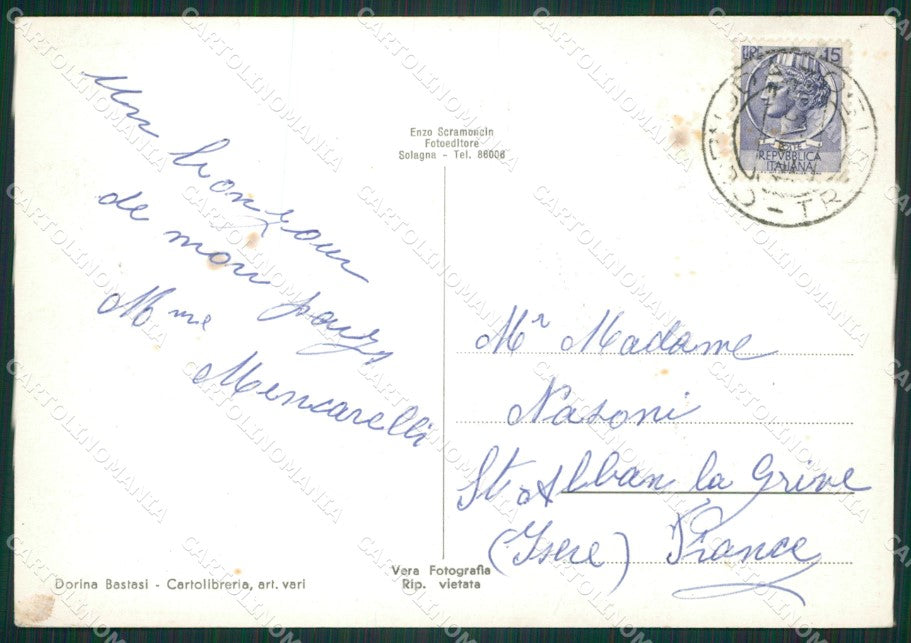 Un
bonjour
de mon pays
Mme
Mencarelli
Enzo Scramoncin
Fotoeditore
Solagna - Tel. 86006
LIRE 15
REPVBBLICA
ITALIANA
Mr Madame
Nasoni
St Alban la Grive
(Isere) France
Vera Fotografia
Rip. vietata
Dorina Bastasi - Cartolibreria, art. vari
CARTOLINOMANIA